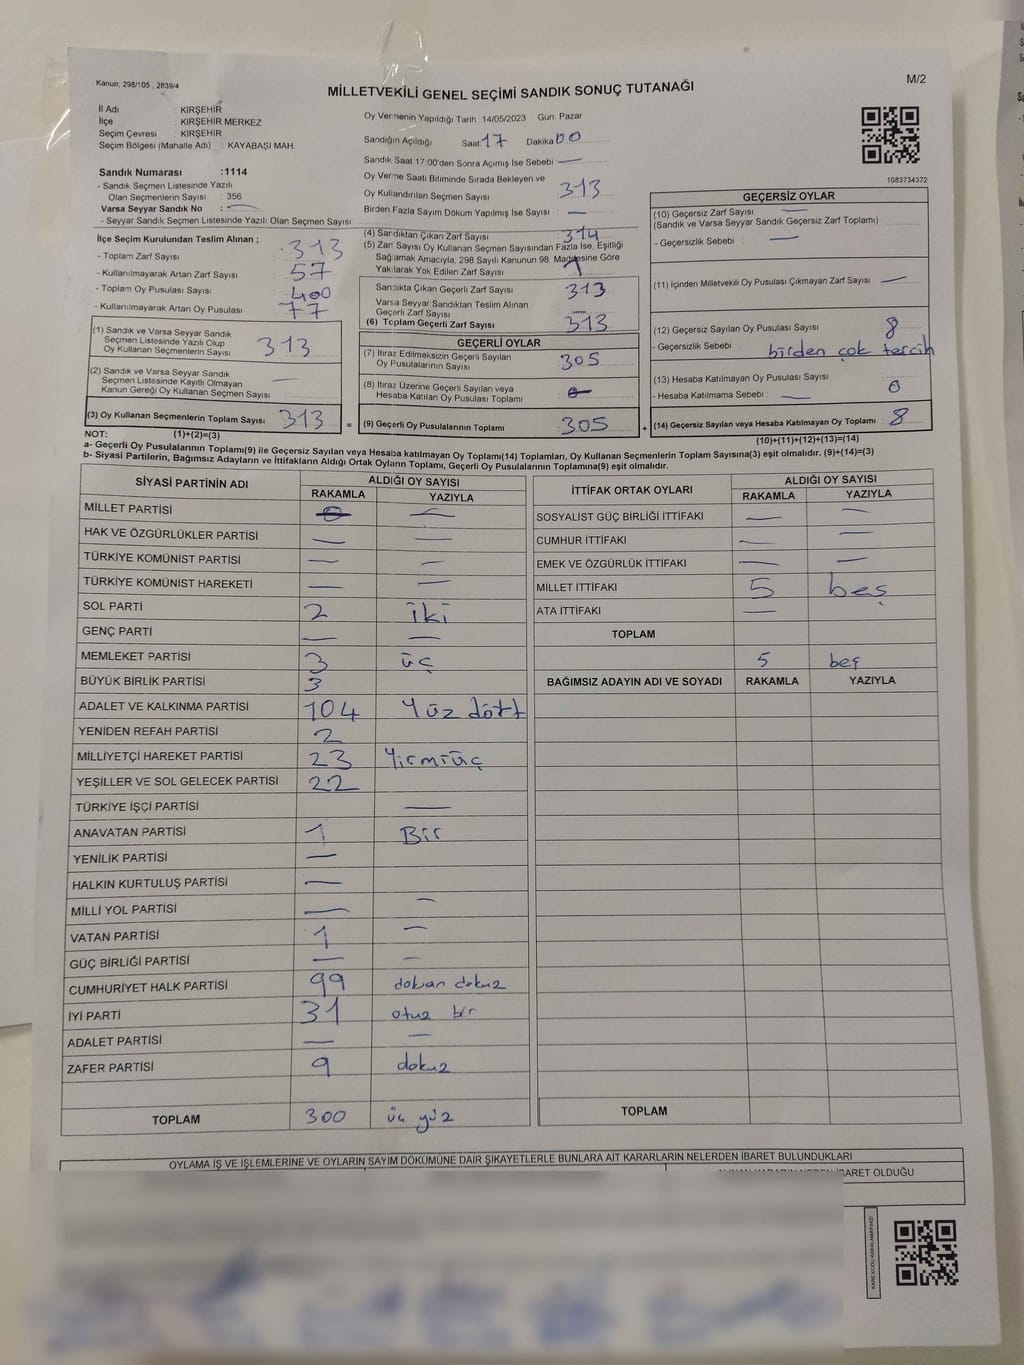 Kanun: 298/105 , 2839/4
MİLLETVEKİLİ GENEL SEÇİMİ SANDIK SONUÇ TUTANAĞI
M/2
İl Adı : KIRŞEHİR
İlçe : KIRŞEHİR MERKEZ
Seçim Çevresi : KIRŞEHİR
Seçim Bölgesi (Mahalle Adı) : KAYABAŞI MAH.
Sandık Numarası :1114
- Sandık Seçmen Listesinde Yazılı
Olan Seçmenlerin Sayısı : 356
Varsa Seyyar Sandık No : —
- Seyyar Sandık Seçmen Listesinde Yazılı Olan Seçmen Sayısı:
İlçe Seçim Kurulundan Teslim Alınan ;
- Toplam Zarf Sayısı : 313
- Kullanılmayarak Artan Zarf Sayısı : 57
- Toplam Oy Pusulası Sayısı : 400
- Kullanılmayarak Artan Oy Pusulası : 77
(1) Sandık ve Varsa Seyyar Sandık
Seçmen Listesinde Yazılı Olup
Oy Kullanan Seçmenlerin Sayısı 313
(2) Sandık ve Varsa Seyyar Sandık
Seçmen Listesinde Kayıtlı Olmayan
Kanun Gereği Oy Kullanan Seçmen Sayısı —
(3) Oy Kullanan Seçmenlerin Toplam Sayısı 313
(1)+(2)=(3)
Oy Vermenin Yapıldığı Tarih :14/05/2023 Gün: Pazar
Sandığın Açıldığı Saat: 17 Dakika 00
Sandık Saat 17:00'den Sonra Açılmış İse Sebebi : —
Oy Verme Saati Bitiminde Sırada Bekleyen ve
Oy Kullandırılan Seçmen Sayısı 313
Birden Fazla Sayım Döküm Yapılmış İse Sayısı —
(4) Sandıktan Çıkan Zarf Sayısı 314
(5) Zarf Sayısı Oy Kullanan Seçmen Sayısından Fazla İse, Eşitliği
Sağlamak Amacıyla, 298 Sayılı Kanunun 98. Maddesine Göre
Yakılarak Yok Edilen Zarf Sayısı 1
Sandıkta Çıkan Geçerli Zarf Sayısı 313
Varsa Seyyar Sandıktan Teslim Alınan
Geçerli Zarf Sayısı
(6) Toplam Geçerli Zarf Sayısı 313
GEÇERLİ OYLAR
(7) İtiraz Edilmeksizin Geçerli Sayılan
Oy Pusulalarının Sayısı 305
(8) İtiraz Üzerine Geçerli Sayılan veya
Hesaba Katılan Oy Pusulası Toplamı 0
= (9) Geçerli Oy Pusulalarının Toplamı 305
1083734372
GEÇERSİZ OYLAR
(10) Geçersiz Zarf Sayısı —
(Sandık ve Varsa Seyyar Sandık Geçersiz Zarf Toplamı)
- Geçersizlik Sebebi : —
(11) İçinden Milletvekili Oy Pusulası Çıkmayan Zarf Sayısı —
(12) Geçersiz Sayılan Oy Pusulası Sayısı 8
- Geçersizlik Sebebi : birden çok tercih
(13) Hesaba Katılmayan Oy Pusulası Sayısı 0
- Hesaba Katılmama Sebebi : —
+ (14) Geçersiz Sayılan veya Hesaba Katılmayan Oy Toplamı : 8
(10)+(11)+(12)+(13)=(14)
NOT:
a- Geçerli Oy Pusulalarının Toplamı(9) ile Geçersiz Sayılan veya Hesaba katılmayan Oy Toplamı(14) Toplamları, Oy Kullanan Seçmenlerin Toplam Sayısına(3) eşit olmalıdır. (9)+(14)=(3)
b- Siyasi Partilerin, Bağımsız Adayların ve İttifakların Aldığı Ortak Oyların Toplamı, Geçerli Oy Pusulalarının Toplamına(9) eşit olmalıdır.
SİYASİ PARTİNİN ADI ALDIĞI OY SAYISI
RAKAMLA YAZIYLA
MİLLET PARTİSİ 0 —
HAK VE ÖZGÜRLÜKLER PARTİSİ — —
TÜRKİYE KOMÜNİST PARTİSİ — —
TÜRKİYE KOMÜNİST HAREKETİ — —
SOL PARTİ 2 iki
GENÇ PARTİ — —
MEMLEKET PARTİSİ 3 üç
BÜYÜK BİRLİK PARTİSİ 3
ADALET VE KALKINMA PARTİSİ 104 Yüz dört
YENİDEN REFAH PARTİSİ 2
MİLLİYETÇİ HAREKET PARTİSİ 23 Yirmiüç
YEŞİLLER VE SOL GELECEK PARTİSİ 22
TÜRKİYE İŞÇİ PARTİSİ —
ANAVATAN PARTİSİ 1 Bir
YENİLİK PARTİSİ —
HALKIN KURTULUŞ PARTİSİ —
MİLLİ YOL PARTİSİ — —
VATAN PARTİSİ 1 —
GÜÇ BİRLİĞİ PARTİSİ — —
CUMHURİYET HALK PARTİSİ 99 doksan dokuz
İYİ PARTİ 31 otuz bir
ADALET PARTİSİ — —
ZAFER PARTİSİ 9 dokuz
TOPLAM 300 üç yüz
İTTİFAK ORTAK OYLARI ALDIĞI OY SAYISI
RAKAMLA YAZIYLA
SOSYALİST GÜÇ BİRLİĞİ İTTİFAKI — —
CUMHUR İTTİFAKI — —
EMEK VE ÖZGÜRLÜK İTTİFAKI — —
MİLLET İTTİFAKI 5 beş
ATA İTTİFAKI —
TOPLAM
5 beş
BAĞIMSIZ ADAYIN ADI VE SOYADI RAKAMLA YAZIYLA
TOPLAM
OYLAMA İŞ VE İŞLEMLERİNE VE OYLARIN SAYIM DÖKÜMÜNE DAİR ŞİKAYETLERLE BUNLARA AİT KARARLARIN NELERDEN İBARET BULUNDUKLARI
OLDUĞU